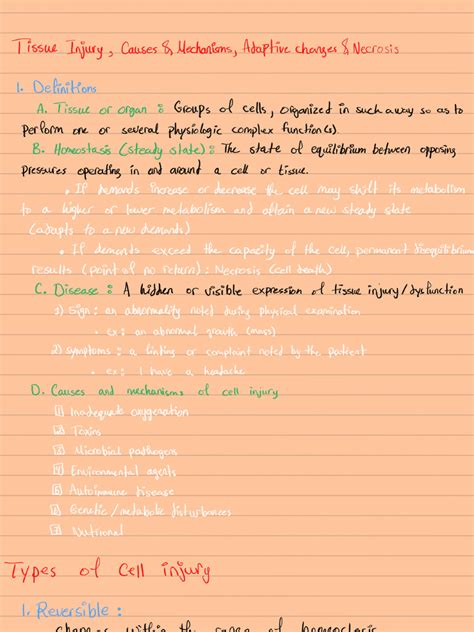 Tissue Injury, Causes & Mechanisms, Adaptive changes & Necrosis
1. Definitions
A. Tissue or organ : Groups of cells, organized in such a way so as to
perform one or several physiologic complex function(s).
B. Homeostasis (steady state) : The state of equilibrium between opposing
pressures operating in and around a cell or tissue.
• If demands increase or decrease the cell may shift its metabolism
to a higher or lower metabolism and attain a new steady state
(adapts to a new demands)
• If demands exceed the capacity of the cell, permanent disequilibrium
results (point of no return) : Necrosis (cell death)
C. Disease : A hidden or visible expression of tissue injury/dysfunction
1) Sign : an abnormality noted during physical examination
• ex : an abnormal growth (mass)
2) symptoms : a finding or complaint noted by the patient
• ex : I have a headache
D. Causes and mechanisms of cell injury
1 Inadequate oxygenation
2 Toxins
3 Microbial pathogens
4 Environmental agents
Autoimmune disease
Genetic / metabolic disturbances
7 Nutritional
Types of Cell injury
1. Reversible :
changes within the range of homeostasis